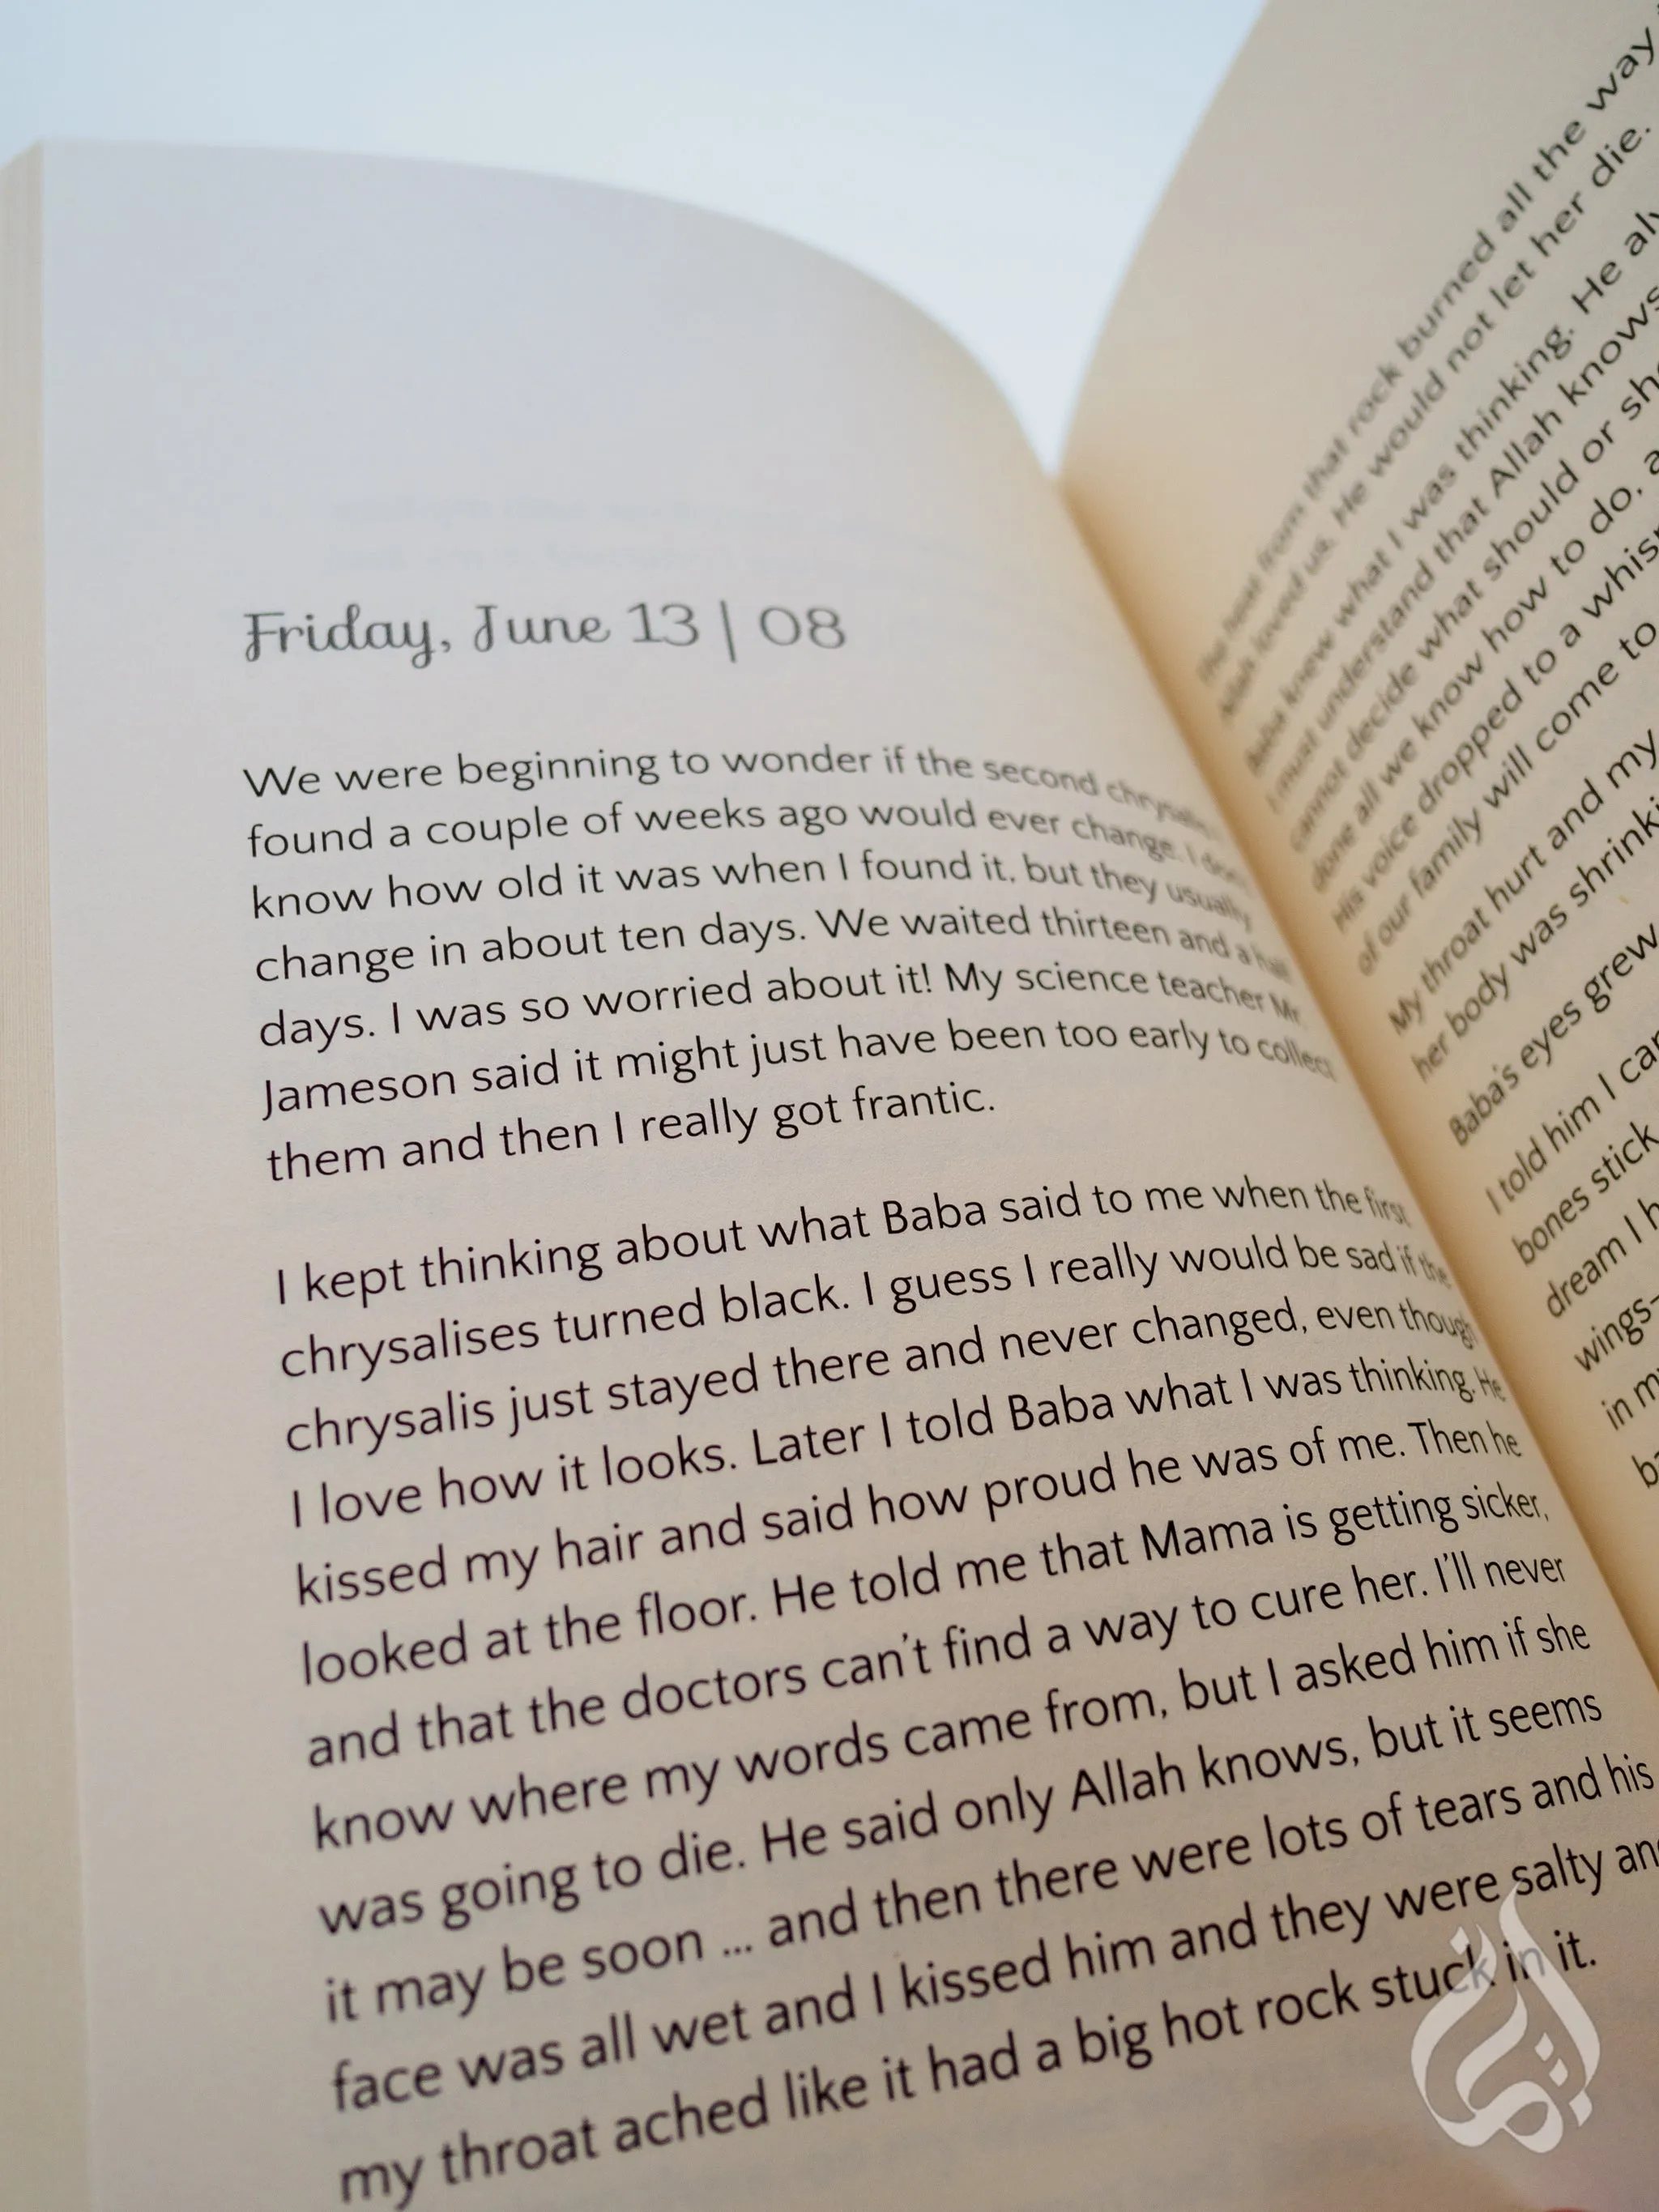 Friday, June 13 | 08
We were beginning to wonder if the second
found a couple of weeks ago would ever change. I
know how old it was when I found it, but they usually
change in about ten days. We waited thirteen and a half
days. I was so worried about it! My science teacher Mr.
Jameson said it might just have been too early to collect
them and then I really got frantic.
I kept thinking about what Baba said to me when the first
chrysalises turned black. I guess I really would be sad if the
chrysalis just stayed there and never changed, even though
I love how it looks. Later I told Baba what I was thinking. He
kissed my hair and said how proud he was of me. Then he
looked at the floor. He told me that Mama is getting sicker,
and that the doctors can't find a way to cure her. I'll never
know where my words came from, but I asked him if she
was going to die. He said only Allah knows, but it seems
it may be soon ... and then there were lots of tears and his
face was all wet and I kissed him and they were salty and
my throat ached like it had a big hot rock stuck in it.
The heat from that rock burned all the way
Allah loved us. He would not let her die.
Baba knew what I was thinking. He
I must understand that Allah knows
cannot decide what should or
done all we know how to do,
His voice dropped to a
of our family will come to
My throat hurt and my
her body was
Baba's eyes grew
I told him I
bones stick
dream I
wings-
in